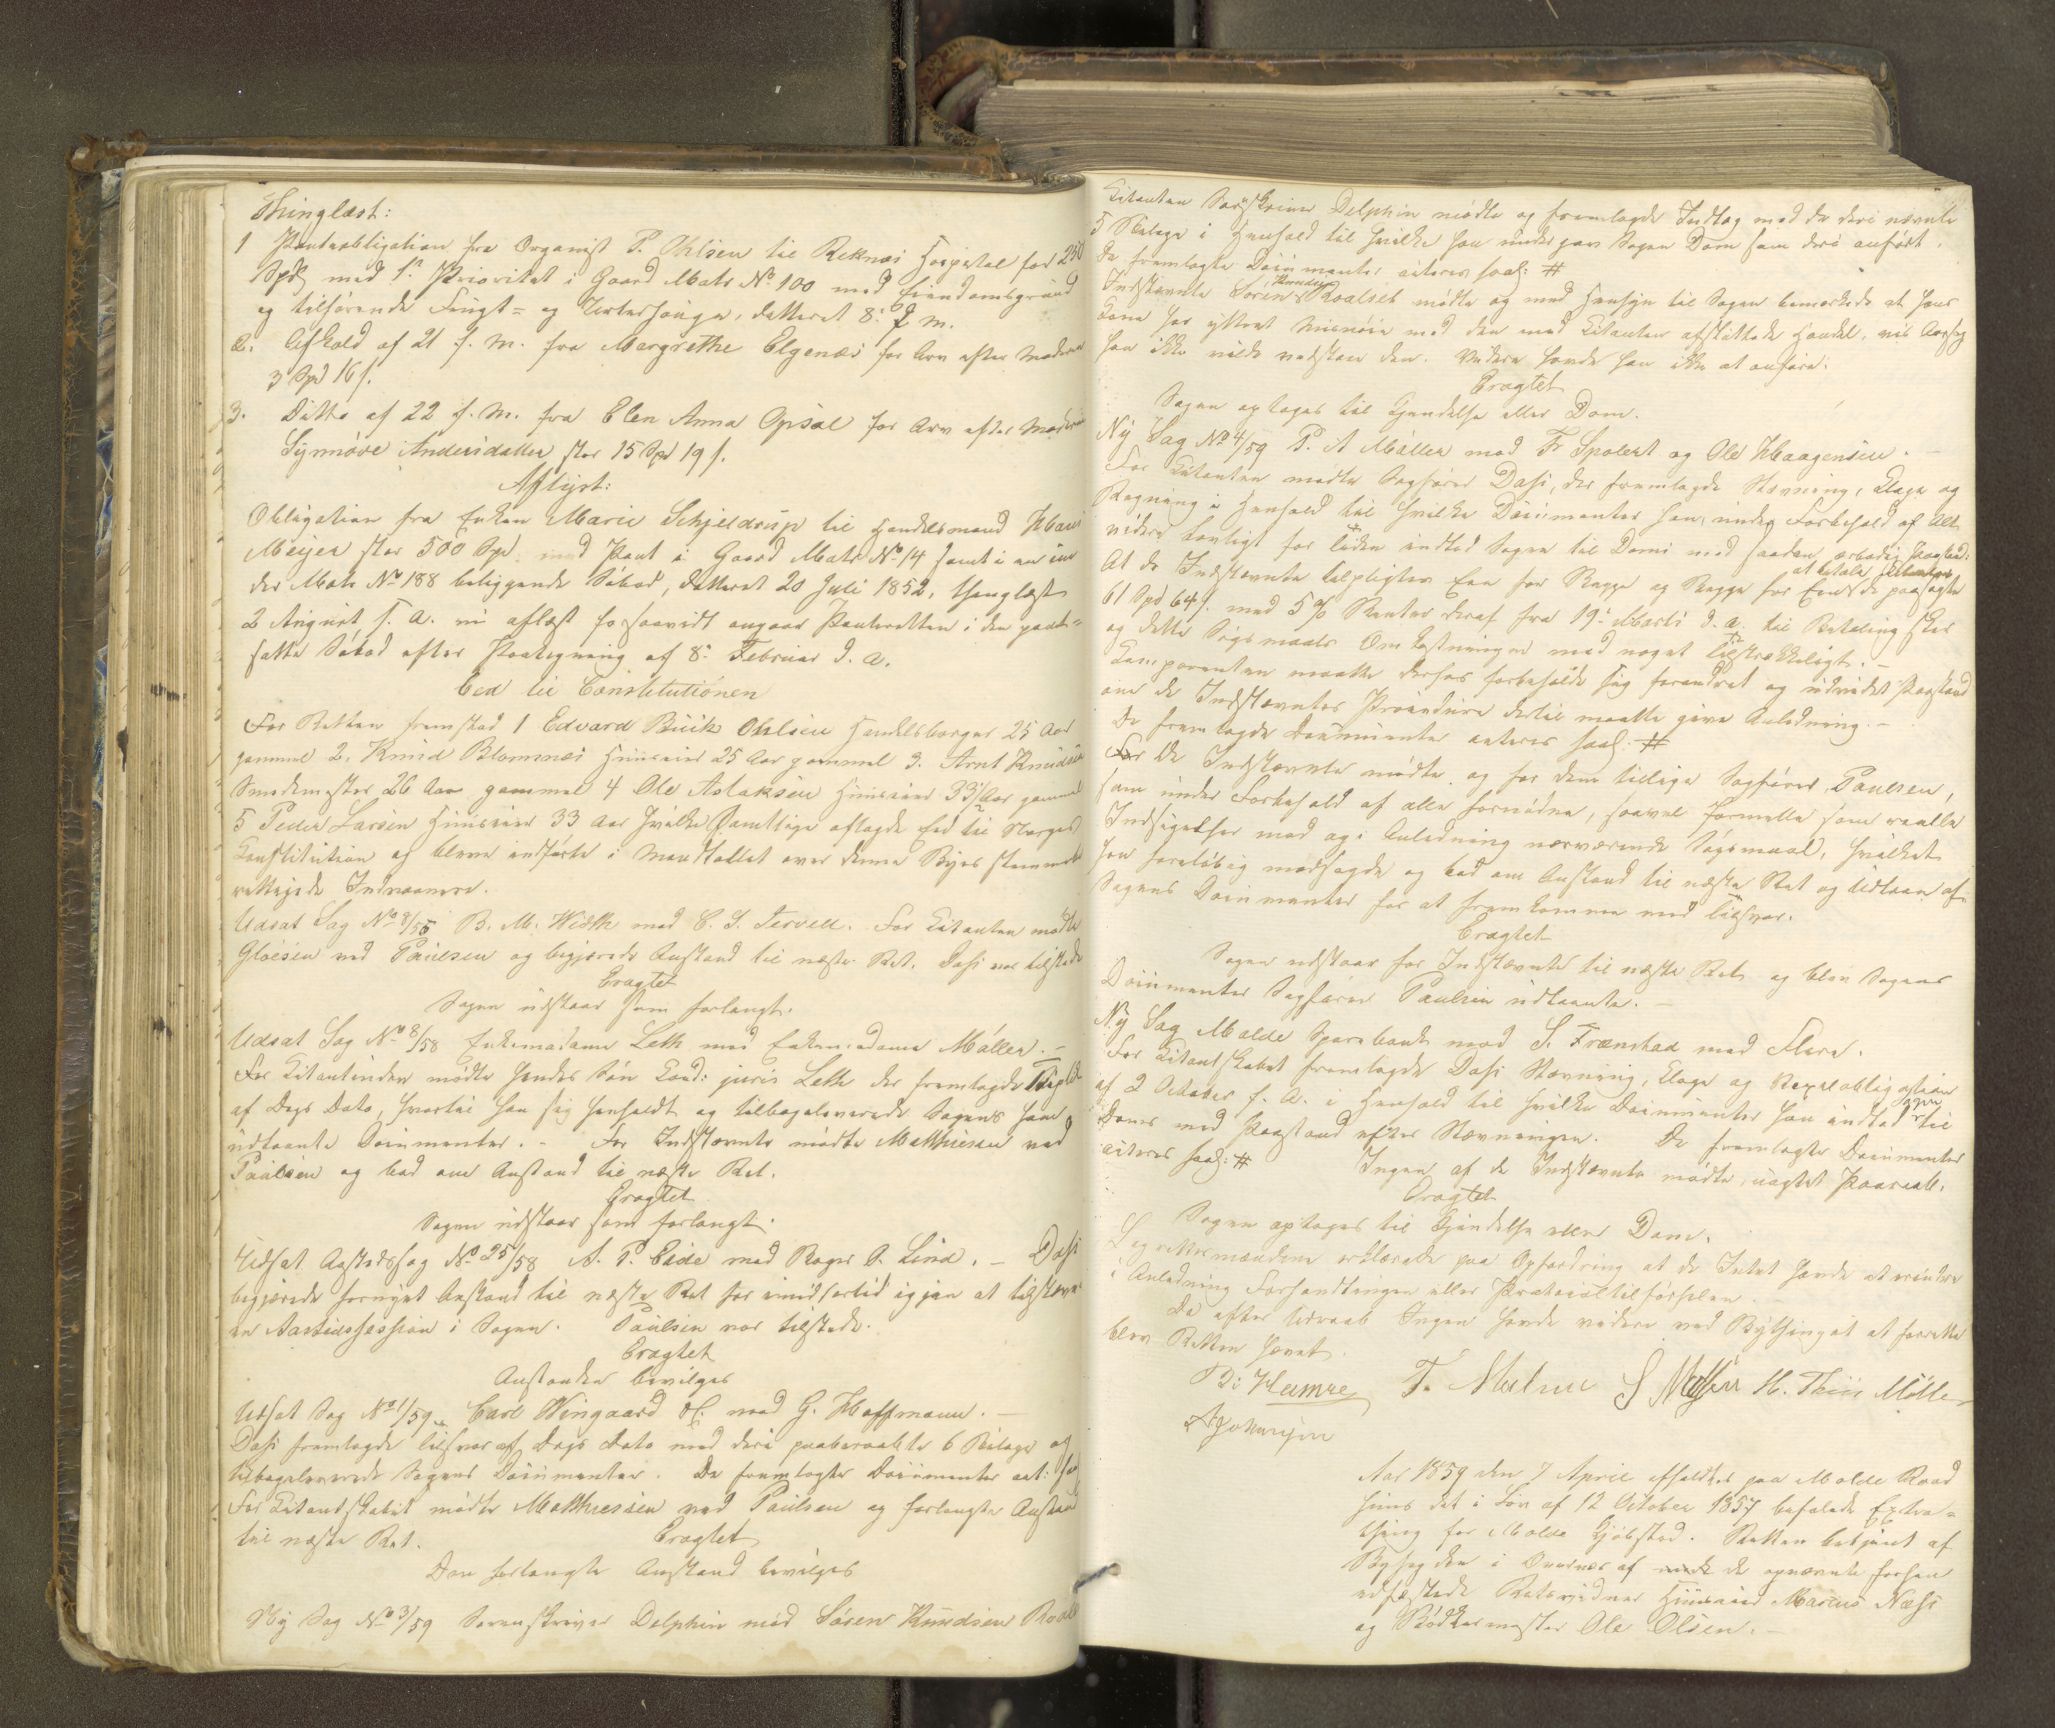 Thinglæst:
1 Panteobligation fra Organist P. Ohlsen til Reknæs Hospital for 250
Spd med 1ste Prioritet i Gaard Matr No 100 med Eiendomsgrund
og tilhørende Frugt= og Urtehauge, datteret 8de d. m.
2. Afkald af 21 f. M. fra Margrethe Elgenæs for Arv efter Moderen
3 Spd 16 s.
3. Ditto af 22 f. M. fra Elen Anna Opsal for Arv efter Moderen
Synnøve Andersdatter stor 15 Spd 19 s.
Aflyst:
Obligation fra Enken Marie Schjeldrup til Handelsmand Hans
Meyer stor 500 Spd med Pant i Gaard Matr No 14 samt i en un
der Matr No 188 beliggende Søbod, datteret 20 Juli 1852, thinglæst
2 August s. A. nu aflæst forsaavidt angaar Panteretten i den pant=
satte Søbod efter Paategning af 8de Februar d. A.
Eed til Constitutionen
For Retten fremstod 1 Edvard Buck Ohlsen Handelsborger 25 Aar
gammel 2. Knud Blomnæs Huuseier 25 Aar gammel 3. Arnt Knudsen
Smedmester 26 Aar gammel 4 Ole Aslaksen Huuseier 33 Aar gammel
5 Peder Larsen Huuseier 33 Aar hvilke samtlige aflagde Eed til Norges
Constitution og bleve indførte i Mandtallet over denne Byes stemme
rettigede Indvaanere.
Udsat Sag No 8/58 B. M. Width mod C. S. Tervell. For Citanten mødte
Gløersen ved Paulsen og begjærede Anstand til næste Ret. Dahl var tilstede
Eragtet
Sagen udstaar som forlangt.
Udsat Sag No 8/58 Enkemadame Leth mod Enkemadame Møller. –
For Citantinden mødte hendes Søn Cand: juris Leth der fremlagde Replik
af Dags Dato, hvortil han sig henholdt og tilbageleverede Sagens ham
udlaante Documenter. – For Indstævnte mødte Matthiesen ved
Paulsen og bad om Anstand til næste Ret.
Eragtet
Sagen udstaar som forlangt.
Udsat Aastedssag No 25/58 A. P. Eide mod Roger A. Lind. – Dahl
begjærede fornyet Anstand til næste Ret for imidlertid igjen at tilstævne
en Aastedssession i Sagen. Paulsen var tilstede.
Eragtet
Anstanden bevilges
Udsat Sag No 1/59 Carl Wingaard &c. mod G. Hoffmann. –
Dahl fremlagde tilsvar af Dags Dato med deri paaberaabte 6 Bilage og
tilbageleverede Sagens Documenter. De fremlagte Documenter act: saal
For Citantskabet mødte Matthiessen ved Paulsen og forlangte Anstand
til næste Ret. Eragtet
Den forlangte Anstand bevilges
Ny Sag No 3/59 Sorenskriver Delphin mod Søren Knudsen Roals
Citanten Sorenskriver Delphin mødte og fremlagde Indlæg med de deri nævnte
5 Bilage i Henhold til hvilke han undergav Sagen Dom som deri anført.
De fremlagte Documenter acteres saal: #
Indstævnte Søren Knudsen Roalset mødte og med Hensyn til Sagen bemærkede at hans
Kone har yttret Misnøie med den med Citanten afsluttede Handel, vis Aarsag
han ikke vilde vedstaae den. Videre havde han ikke at anføre.
Eragtet
Sagen optages til Kjendelse eller Dom.
Ny Sag No 4/59 P. A Møller mod Fr Spolert og Ole Haagensen. –
For Citanten mødte Sagfører Dahl, der fremlagde Stævning, Klage og
Regning i Henhold til hvilke Documenter han, under Forbehold af Alt
videre Lovligt for tiden indlod Sagen til Doms med saadan ærbødig Paastand:
At de Indstævnte tilpligtes Een for Begge og Begge for Een at betale de paasagte
61 Spd 64 s. med 5 % Renter deraf fra 19de Marts d. A. til Betaling skeer
og dette Søgsmaals Omkostninger med noget tilstrækkeligt. –
Comparenten maatte derhos forbeholde sig forandret og udvidet Paastand
om de Indstævntes Procedure dertil maatte give Anledning. –
De fremlagde Documenter acteres saal: #
For De Indstævnte mødte og for dem tillige Sagfører Paulsen,
som under Forbehold af alle fornødne, saavel formelle som reelle
Indsigelser mod og i Anledning nærværende Søgsmaal, hvilket
han foreløbig modsagde og bad om Anstand til næste Ret og Udlaan af
Sagens Documenter for at fremkomme med tilsvar.
Eragtet
Sagen udstaar for Indstævnte til næste Ret og blev Sagens
Documenter Sagfører Paulsen udlaante. –
Ny Sag Molde Sparebank mod S. Frænstad med Flere.
For Citantskabet fremlagde Dahl Stævning, Klage og Vexelobligation
af 2 October f. A. i Henhold til hvilke Documenter han indlod Sagen til
Doms med Paastand efter Stævningen. De fremlagte Documenter
acteres saal: # Ingen af de Indstævnte mødte, uagtet Paaraab.
Eragtet
Sagen optages til Kjendelse eller Dom.
Lagrettesmændene erklærede paa Opfordring at de Intet havde at erindre
i Anledning Forhandlingen eller Protocoltilførselen.
Da efter Udraab Ingen havde videre ved Bythinget at forrette
blev Retten hævet.
B: Hamre F. Malme S Møller H. Thiis Møller
A Johansen
Aar 1859 den 7 April afholdtes paa Molde Raad
huus det i Lov af 12 October 1857 befalede Extra=
thing for Molde Kjøbstad. Retten betjent af
Byfogden i Overvær af de opnævnte forhen
edfæstede Retsvidner Huuseier Marcus Næss
og Bødkermester Ole Olsen. –